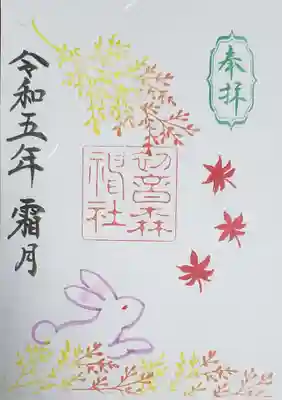 奉拝
初音森神社
令和五年 霜月